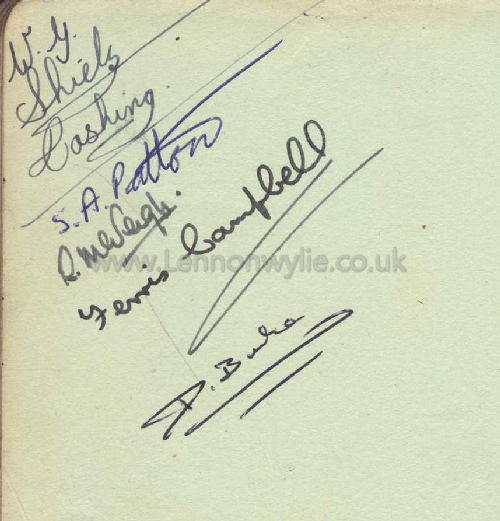 W. G.
Shiels
Cushing
S. A. Patton
R. McVeigh.
Ferris Campbell
www.Lennonwylie.co.uk